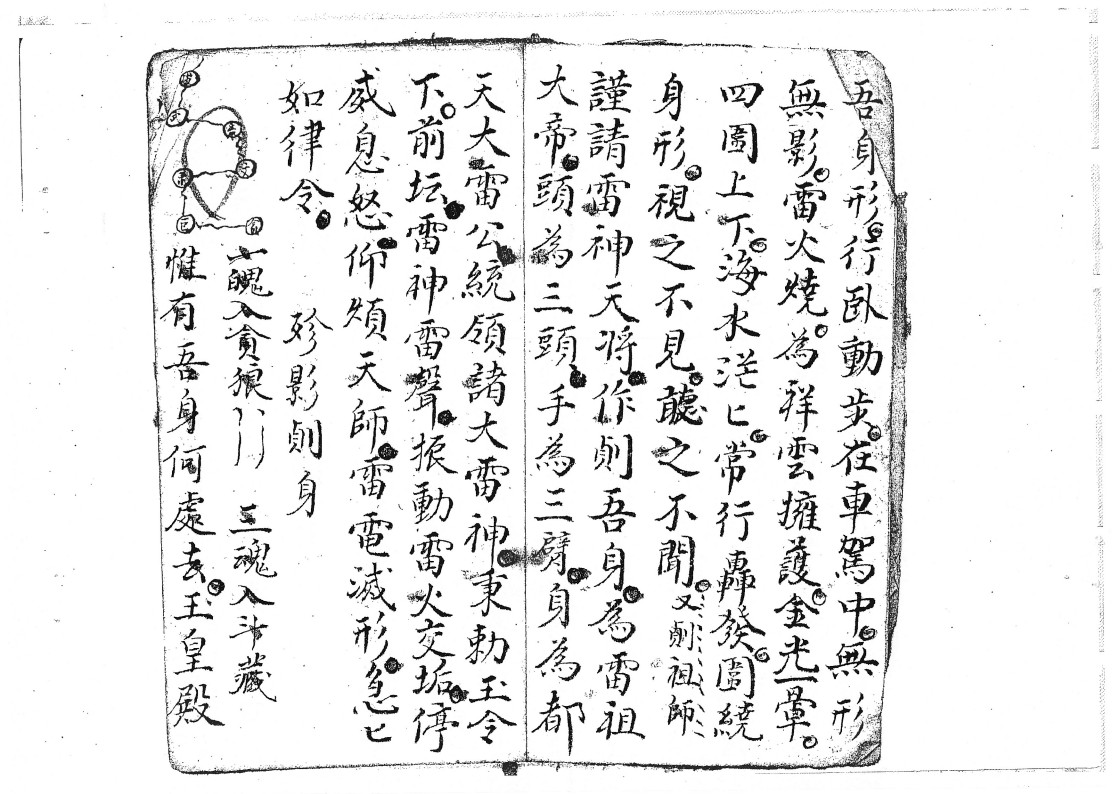 吾身形行卧動步在車駕中無形
無影雷火燒為祥雲擁護金光一暈
四圍上下海水茫匕常行轟發圍繞
身形視之不見聽之不聞又創祖師
謹請雷神天將作創吾身為雷祖
大帝頭為三頭手為三臂身為都
天大雷公統領諸大雷神秉勅玉令
下前坛雷神雷聲振動雷火交垢停
威息怒仰煩天師雷電滅形急匕
如律令
殄影創身
七魄入貪狼 三魂入斗藏
惟有吾身何處去玉皇殿